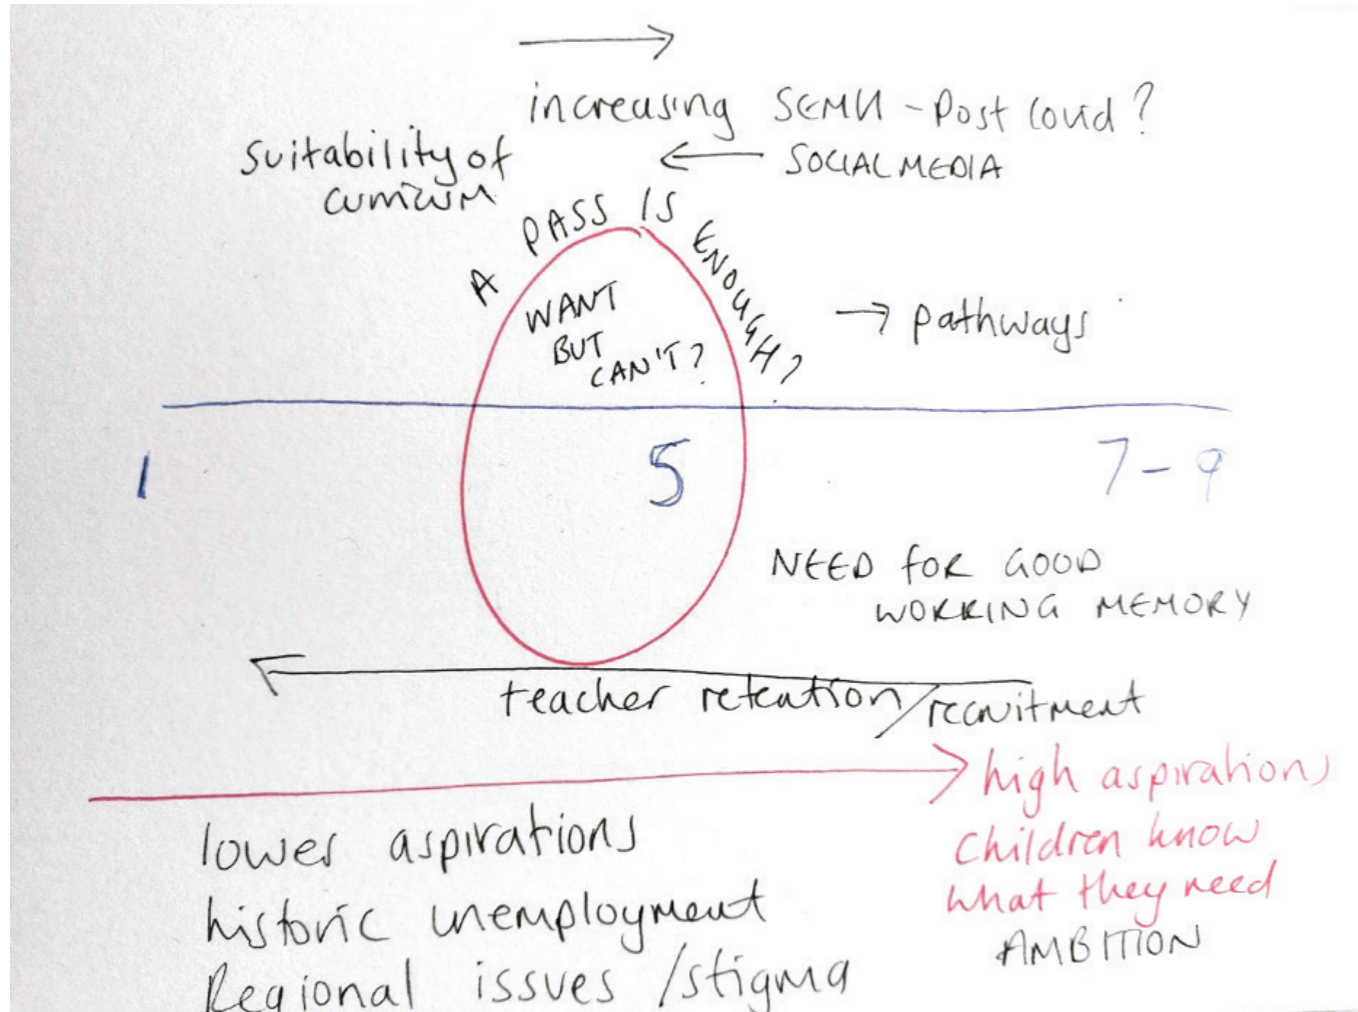 increasing SEMH - Post Covid?
← SOCIAL MEDIA
suitability of
curriculum
A PASS IS ENOUGH?
WANT
BUT
CAN'T?
→ pathways
1 5 7-9
NEED FOR GOOD
WORKING MEMORY
teacher retention/recruitment
high aspirations
children know
what they need
AMBITION
lower aspirations
historic unemployment
Regional issues /stigma